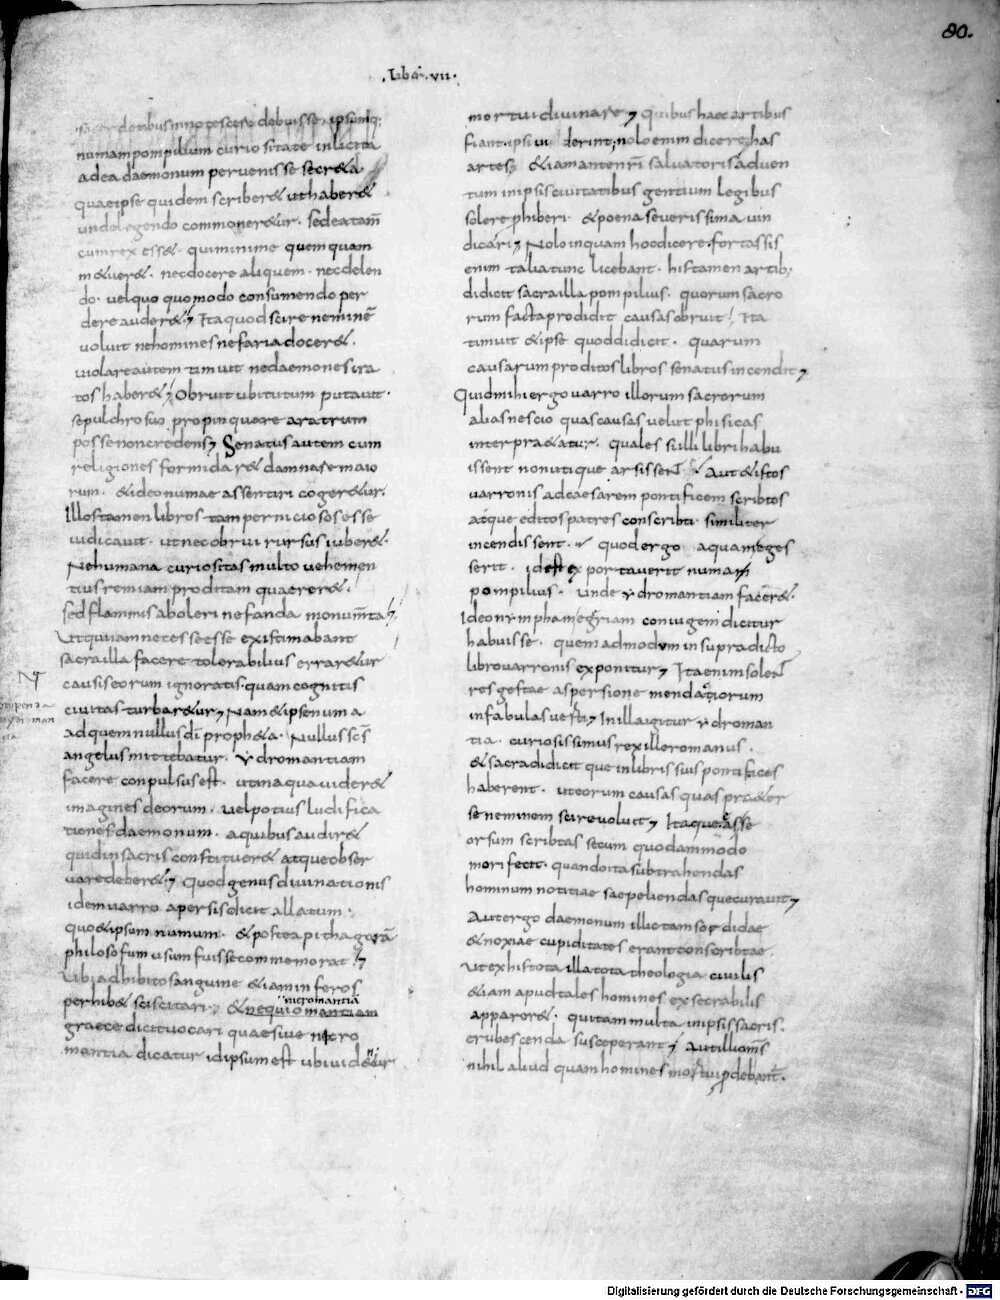 80.
Liber. vii.
sacerdotibus innotescere debuisse ipsumq;
numam pompilium curiositate inlicita
ad ea daemonum pervenisse secreta
quae ipse quidem scriberet ut haberet
unde legendo commoneretur. sed ea tam̅
cum rex esset. qui minime quemquam
metueret. nec docere aliquem. nec delen
do. vel quoquo modo consumendo per
dere auderet; Ita quod scire neminē
voluit ne homines nefaria doceret.
violare autem timuit ne daemones ira
tos haberet; Obruit ubi tutum putavit.
sepulchro suo propinquare aratrum
posse non credens; Senatus autem cum
religiones formidaret damnare maio
rum. & ideo numae assentiri cogeretur.
Illos tamen libros tam perniciosos esse
iudicavit. ut nec obrui rursus iuberet.
Ne humana curiositas multo vehemen
tius rem iam proditam quaereret.
sed flammis aboleri nefanda monum̅ta;
Ut quiiam necesse esse existimabant
sacra illa facere tolerabilius errar&ur
causis eorum ignoratis. quam cognitis
civitas turbar&ur; Nam & ipse numa
ad quem nullus di̅ proph&a. Nullus sc̅s
angelus mittebatur. Ydromantiam
facere conpulsus est. ut in aqua vider&
imagines deorum. vel potius ludifica
tiones daemonum. a quibus audir&
quid in sacris constituer& atque obser
vare deber&; Quod genus divinationis
idem varro a persis dicit allatum.
quo & ipsum numum. & postea pithagorā
philosofum usum fuisse commemorat;
Ubi adhibito sanguine & iam inferos
perhib& sciscitari; &
nicromantia
nequiomantiam
graece dicit vocari quae sive necro
mantia dicatur id ipsum est ubi vid&ur
mortui divinare; Quibus haec artibus
fiant. ipsi viderint; nolo enim dicere has
artes & iam ante nr̅i salvatoris adven
tum in ipsis civitatibus gentium legibus
solere prohiberi. & poena severissima vin
dicari; Nolo inquam hoc dicere. fortassis
enim talia tunc licebant. his tamen artib;
didicit sacra illa pompilius. quorum sacro
rum facta prodidit causas obruit; Ita
timuit & ipse quod didicit. quarum
causarum proditos libros senatus incendit;
Quid mihi ergo varro illorum sacrorum
alias nescio quas causas velut phisicas
interpra&atur. quales si illi libri habu
issent non utique arsissent. Aut & istos
varronis ad caesarem pontificem scribtos
atque editos patres conscribti similiter
incendissent. quod ergo aquam eges
serit. id est exportaverit numam
pompilius. unde ydromantiam facer&.
Ideo nympham egeriam coniugem dicitur
habuisse. quem admodum in supradicto
libro varronis exponitur; Ita enim solent
res gestae aspersione mendaciorum
in fabulas verti; In illa igitur ydroman
tia. curiosissimus rex ille romanus.
& sacra didicit que in libris suis pontifices
haberent. ut eorum causas quas pra&er
se neminem scire voluit; Itaque a se
orsum scribtas secum quodammodo
mori fecit. quando ita subtrahendas
hominum notitiae saepeliendasque curavit;
Aut ergo daemonum illic tam sordidae
& noxiae cupiditates erant conscribtae.
ut ex his tota illa tota theologia civilis
& iam apud tales homines exsecrabilis
apparer&. qui tam multa in ipsis sacris.
erubescenda susceperant; Aut illi om̅s
nihil aliud quam homines mortui prodebant̅.
Digitalisierung gefördert durch die Deutsche Forschungsgemeinschaft - DFG